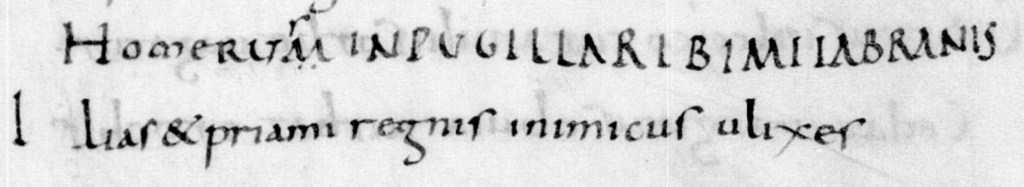 HomERUM INPUGILLARIBIMIIABRANIS
I lias & priami regnis inimicus ulixes